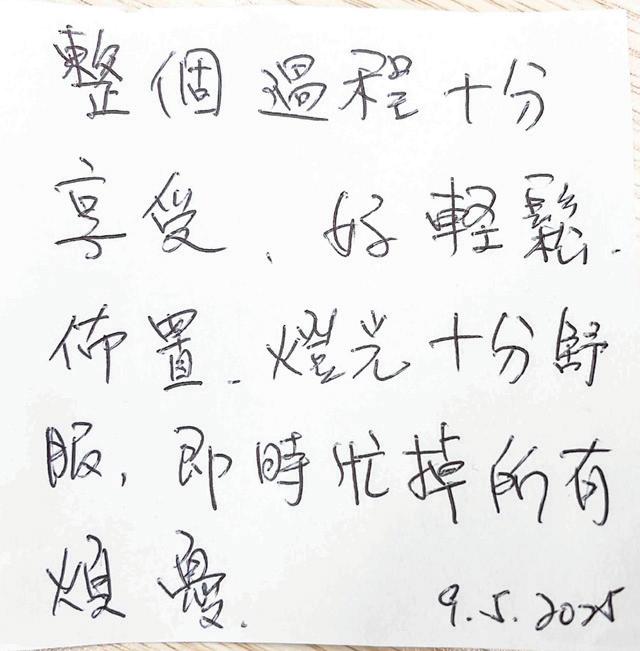 整個過程十分
享受、好輕鬆.
佈置、燈光十分舒
服, 即時忙掉所有
煩憂.
9.5.2025